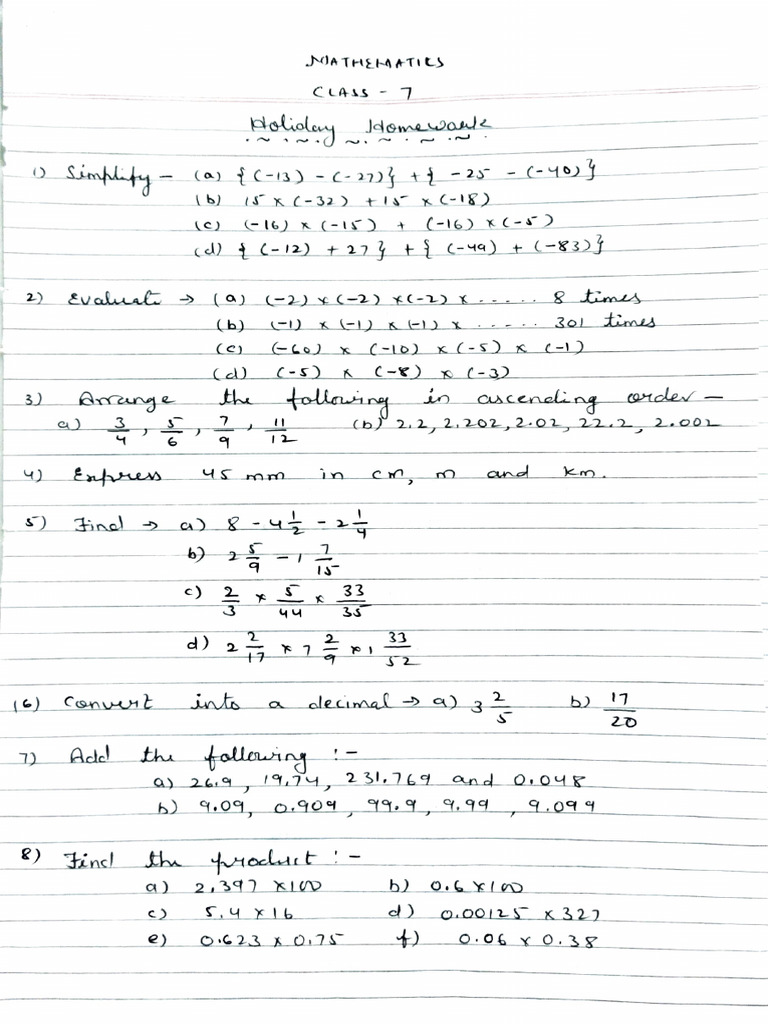 MATHEMATICS
CLASS - 7
Holiday Homework
1) Simplify - (a) {(-13) - (-27)} + { -25 - (-40)}
(b) 15 × (-32) + 15 × (-18)
(c) (-16) × (-15) + (-16) × (-5)
(d) { (-12) + 27} + { (-49) + (-83)}
2) Evaluate → (a) (-2) × (-2) × (-2) × ...... 8 times
(b) (-1) × (-1) × (-1) × ...... 301 times
(c) (-60) × (-10) × (-5) × (-1)
(d) (-5) × (-8) × (-3)
3) Arrange the following in ascending order -
a) 3/4, 5/6, 7/9, 11/12 (b) 2.2, 2.202, 2.02, 22.2, 2.002
4) Express 45 mm in cm, m and km.
5) Find → a) 8 - 4 1/2 - 2 1/4
b) 2 5/9 - 1 7/15
c) 2/3 × 5/44 × 33/35
d) 2 2/17 × 7 2/9 × 1 33/52
(6) Convert into a decimal → a) 3 2/5 b) 17/20
7) Add the following :-
a) 26.9, 19.74, 231.769 and 0.048
b) 9.09, 0.909, 99.9, 9.99, 9.099
8) Find the product :-
a) 2.397 × 100 b) 0.6 × 100
c) 5.4 × 16 d) 0.00125 × 327
e) 0.623 × 0.75 f) 0.06 × 0.38